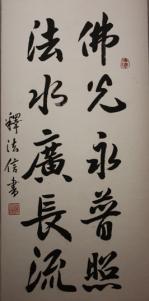 佛光永普照
法水廣長流
釋法信書